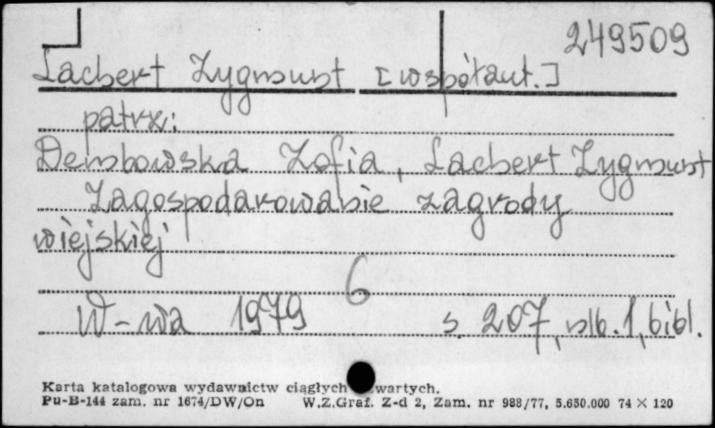 249509
Lachert Zygmunt [współaut.]
patrz:
Dembowska Zofia, Lachert Zygmunt
Zagospodarowanie zagrody
wiejskiej
6
W-wa 1979 s. 207, nlb. 1, bibl.
Karta katalogowa wydawnictw ciągłych wartych.
Pu-B-144 zam. nr 1674/DW/On W.Z.Graf. Z-d 2, Zam. nr 988/77, 5.650.000 74 × 120